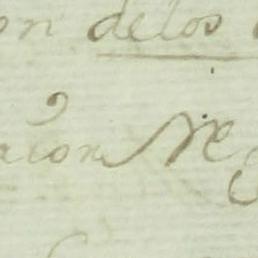 on delos
acion Ne